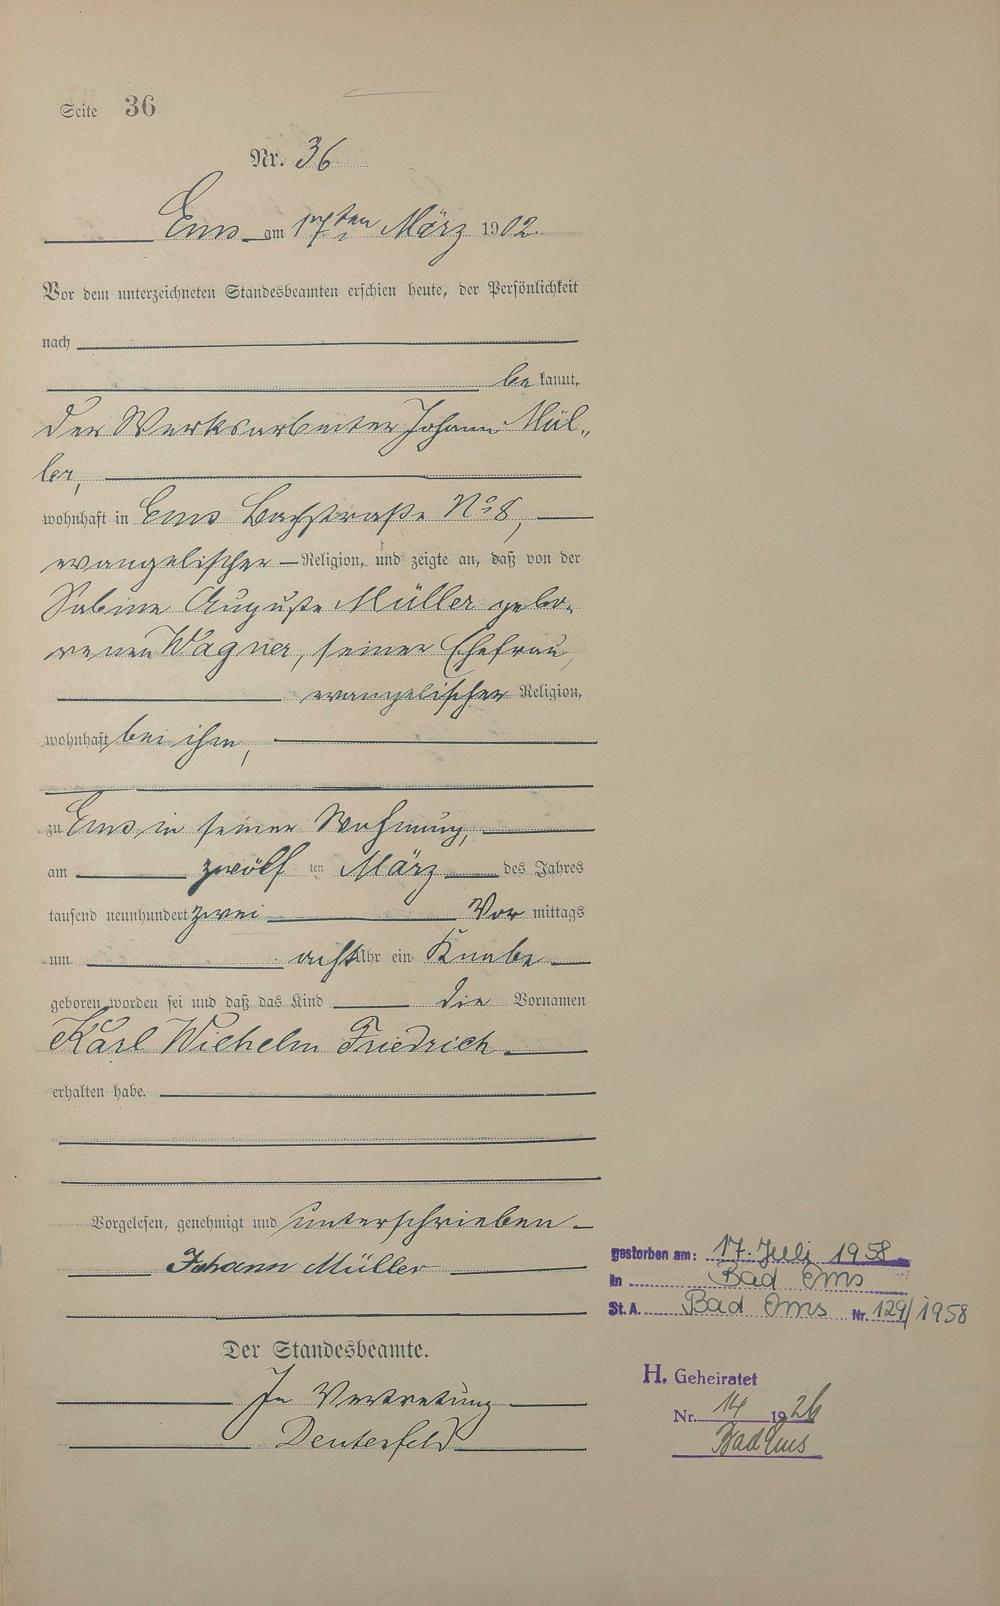 Seite 36
Nr. 36
Ems am 17ten März 1902.
Vor dem unterzeichneten Standesbeamten erschien heute, der Persönlichkeit
nach
bekannt,
der Werksarbeiter Johann Mül-
ler,
wohnhaft in Ems Bachstraße No 8,
evangelischer Religion, und zeigte an, daß von der
Sabine Auguste Müller gebo-
renen Wagner, seiner Ehefrau,
evangelischer Religion,
wohnhaft bei ihm,
zu Ems in seiner Wohnung,
am zwölf ten März des Jahres
tausend neunhundert zwei Vor mittags
um acht Uhr ein Knabe
geboren worden sei und daß das Kind die Vornamen
Karl Wilhelm Friedrich
erhalten habe.
Vorgelesen, genehmigt und unterschrieben
Johann Müller
Der Standesbeamte.
In Vertretung
gestorben am: 17. Juli 1958
in Bad Ems
St. A. Bad Ems Nr. 129/1958
H. Geheiratet
Nr. 14 1926
Bad Ems